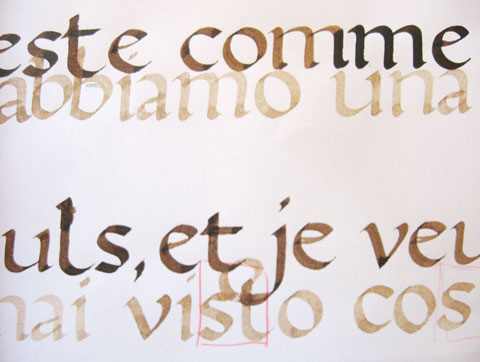 este comme
abbiamo una
uls, et je veu
nai visto cos